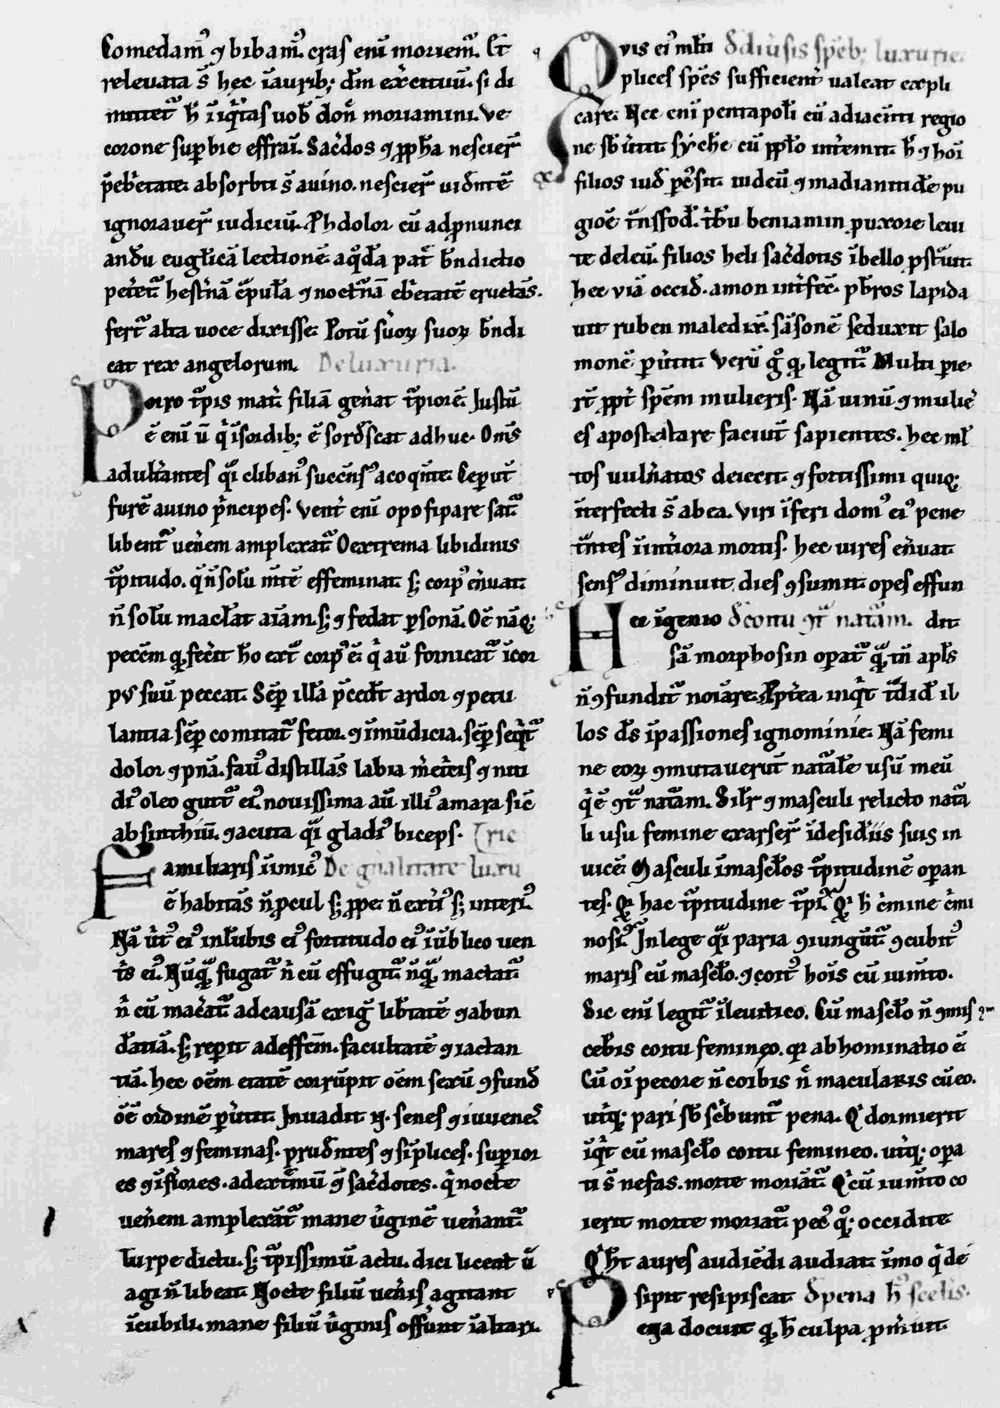 Comedam⁹ ⁊ bibam⁹. cras eni᷑ moriem᷑. Et
releuata s̄ hec ī aurib; dn̄i exercituū. si di
mittet᷑ h̄ iniq̄tas uob̄ don̄ moriamini. Ve
corone superbie effraī. Sac̄dos ⁊ ꝓph̄a nescier᷑
p̄ ebrietate. absorbti s̄ a uino. nescier᷑ uidn̄tē
ignorauer᷑ iudiciū. Ph dolor cū ad ꝓnunci
andū euḡlicā lectionē a q̄da pat᷑ bn̄dictio
petet᷑ hest̄nā c̄pulā ⁊ noct̄nā eb̄etatē eructās.
fert᷑ alta uoce dixisse. Potū s̄uoꝝ suoꝝ bn̄di
cat rex angelorum. De luxuria.
Porro t᷑pis mat̄ filiā gen̄at t᷑piorē. Justū
ē eni᷑ ū q̄ ī sordib; ē sord̄scat adhuc. Om̄s
adult̄antes q̄i clibanꝰ succēnsꝰ a coq̄nte. Ceper̄t
fur̄e a uino p̄ncipes. vent̄ eni᷑ opo sipare sat᷑
libent᷑ uen̄em amplexat᷑ O extrema libidinis
t᷑pitudo. q̄ n̄ solū mt̄ē effeminat s; corpꝰ en̄uat.
n̄ solū macl̄at aīam s; ⁊ fedat ꝑsonā. Oē nāq;
peccm̄ q̄ fec̄it h̄o ext᷑ corpꝰ ē. q̄ aū fornicat᷑ ī cor
pꝰ suū peccat. Sēp illā p̄cedit ardor ⁊ petu
lantia sēp comitat᷑ fetor ⁊ īmūdicia. sēp seq̄t᷑
dolor ⁊ pn̄a. fauꝰ distillās labia m̄et̄cis ⁊ niti
diꝰ oleo gutt᷑ eiꝰ. nouissima aū illiꝰ amara sic̄
absinthiū. ⁊ acuta q̄i gladiꝰ biceps. [rie
Familiaris īimicꝰ De gn̄alitate luxu
ē habitās n̄ ꝓcul s; ꝓpe. n̄ ext̄iꝰ s; int̄iꝰ.
Nā ūt᷑ eiꝰ in lūbis eiꝰ fortitudo eiꝰ ī ūbilico uen
t̄s eiꝰ. Nūq̄ fugat᷑ n̄ cū effugit᷑ nūq̄ mactat᷑
n̄ cū mac̄at᷑ ad causā exiḡ lib̄tatē ⁊ abun
dātiā. s; reper̄it ad effc̄m facultatē ⁊ iactan
tiā. hec oēm etatē corrūpit oēm sexū ⁊fund
oē ordinē ꝑu̅tit. Inuadit n̄. senes ⁊ iuuenes
mares ⁊ feminas. prudn̄tes ⁊ sīplices. superior
es ⁊ īf̄iores. ad ext̄mū ⁊ sac̄dotes. q̄ nocte
uen̄em amplexāt᷑ mane ūginē uen̄ant᷑
Turpe dictu. s; t᷑pissimū actu. dici liceat ū
agi n̄ libeat. Nocte filiū uen̄is agitant
ī cubili. mane filiū ūginis offūnt ī altari.
Qvis eiꝰ ml̄ti d̄ diūsis spēb; luxurie.
plices spēs sufficient̄ ualeat expli
care. Hec eni᷑ pentapolī cū adiacn̄ti regio
ne sb̄ūtit sẏchē cū ꝓplo int̄emit. h̄ ⁊ hoī
filios iud ꝑcs̄it. iudeū ⁊ madianitidē pu
gioē t̄nsfod̄. t̄bū beniamin ꝓ uxore leui
te deleu̅. filios heli sac̄dotis ī bello ꝓst̄uit.
hec viā occid̄. amon int̄fec̄. p̄b̄ros lapida
uit ruben maledix̄. sāsonē seduxit salo
monē ꝑūtit. Verū ḡ q̄ legit᷑. Multi pie
rt̄ ꝓpt̄ spēm mulieris. Nā uinū ⁊ mulie̅
es apostatare faciūt sapientes. hec ml̄
tos uuln̄atos deiecit. ⁊ fortissimi quiq;
īterfecti s̄ ab ea. Viri īferi domꝰ eiꝰ pene
t̄ntes ī int̄iora mortis. hec uires en̄uat.
sensꝰ diminuit dies ⁊sumit. opes effun
Hec īgenio d̄ coitu ⁊t᷑ natām. dit
sā morphosin opat᷑ q̄ t̄n apl̄s
n̄ ⁊fundit᷑ noīare. Ppt̄ea inq̄t t̄didit il
los ds̄ ī passiones ignominie. Nā femi
ne eoꝝ ⁊mutauerūt natālē usū in eū
q̄ ē ⁊t᷑ natām. Silr̄ ⁊ masculi relicto natā
li usu femine exarser᷑ ī desidiis suis in
uicē Masculi ī mascl̄os t᷑pitudinē opan
tes. Qꝛ hac t᷑pitudine t᷑pi᷑. Qꝛ h̄ c̄mine c̄mi
nosi᷑. In lege q̄i paria ⁊iungūt᷑ ⁊cubitꝰ
maris cū mascl̄o. ⁊ coitꝰ hoīs cū iumn̄to.
Sic eni᷑ legit᷑ ī leuitico. Cū mascl̄o n̄ ⁊mis
ceb̄is coitu femineo. qꝛ abhominatio ē
Cū oī pecore n̄ coībis n̄ macularis cū eo.
utiq; pari sb̄scb̄unt᷑ pena. Q̄ dormierit
īq̄t cū mascl̄o coitu femineo. utq; opa
ti s̄ nefas. morte moriat᷑. Q̄ cū iumn̄to co
ierit morte moriat᷑ pecꝰ q̄q; occidite
Q̄ h̄t aures audiēdi audiat. īmo q̄ de
sipit resipiscat d̄ pena hꝰ scel̄is.
Pena docuit q̄ h̄ culpa ꝓm̄uit.